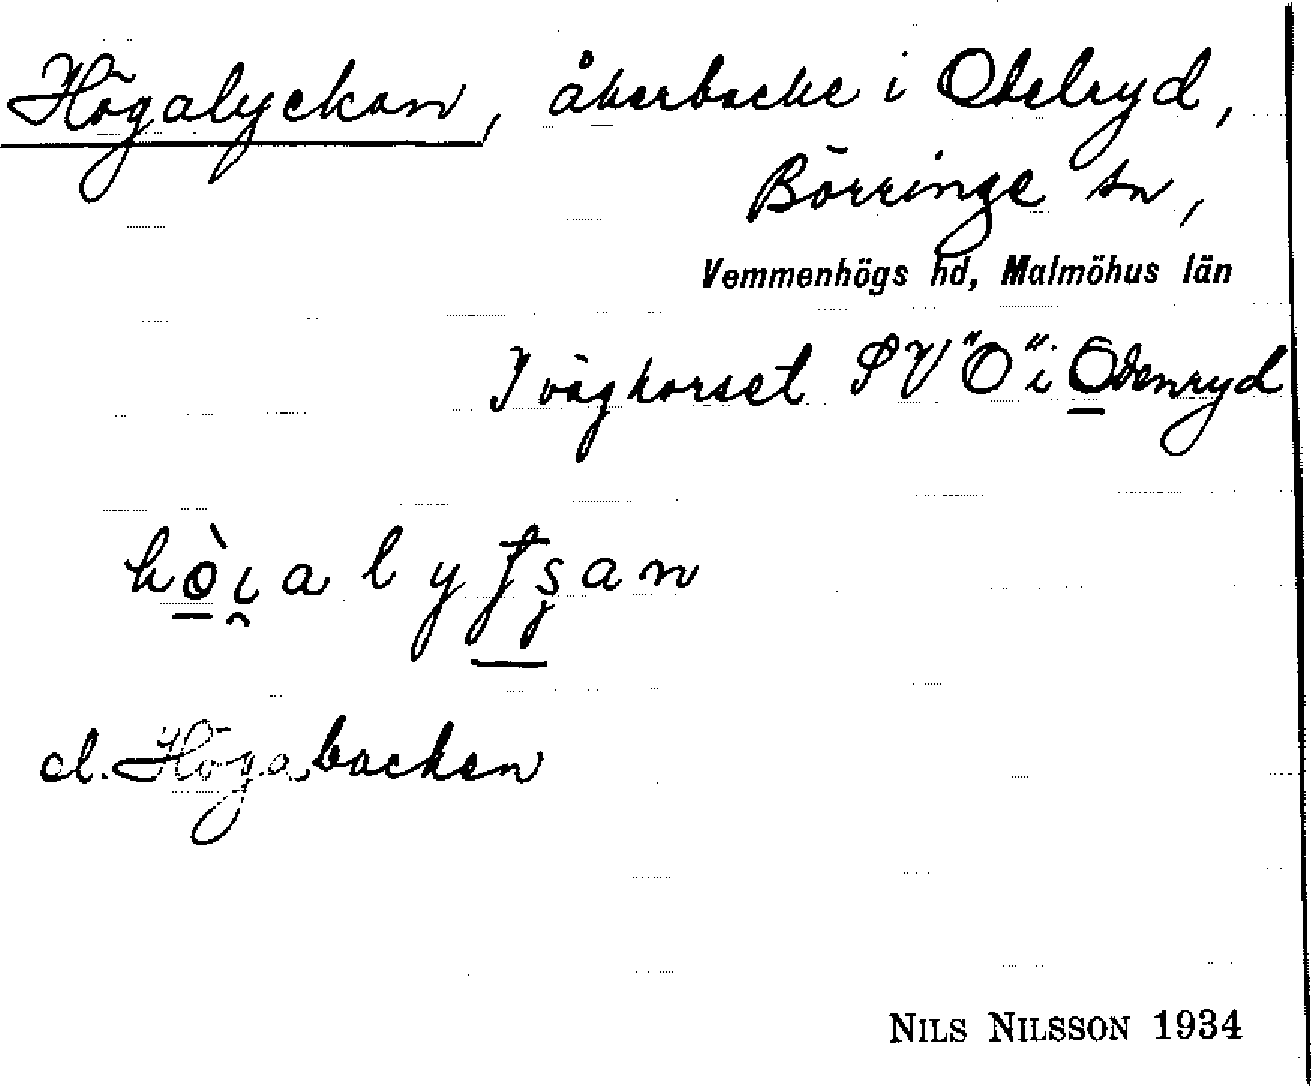 Högalyckan, åkerbacke i Obelryd,
Börringe sn,
Vemmenhögs hd, Malmöhus län
I vägkorset SV "O" i Odenryd
el. Högabacken
NILS NILSSON 1934